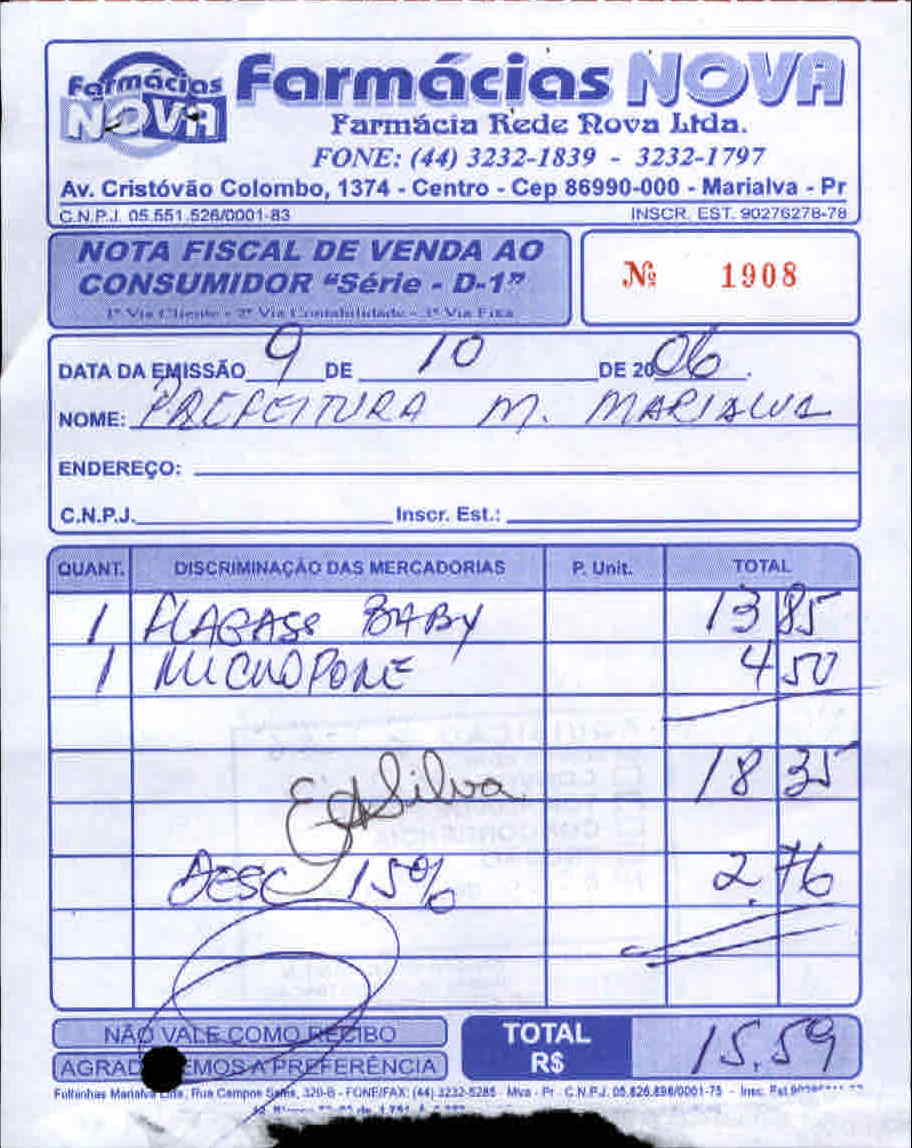 Farmácias NOVA Farmácias NOVA
Farmácia Rede Nova Ltda.
FONE: (44) 3232-1839 - 3232-1797
Av. Cristóvão Colombo, 1374 - Centro - Cep 86990-000 - Marialva - Pr
C.N.P.J. 05.551.526/0001-83 INSCR. EST. 90276278-78
NOTA FISCAL DE VENDA AO
CONSUMIDOR “Série - D-1” Nº 1908
1ª Via Cliente - 2ª Via Contabilidade - 3ª Via Fixa
DATA DA EMISSÃO 9 DE 10 DE 2006.
NOME: PREFEITURA M. MARIALVA
ENDEREÇO:
C.N.P.J. Inscr. Est.:
QUANT. DISCRIMINAÇÃO DAS MERCADORIAS P. Unit. TOTAL
1 FLAGASS BABY 13 85
1 MICROPORE 4 50
18 35
Silva
DESC 15% 2.76
NÃO VALE COMO RECIBO
TOTAL R$ 15.59
AGRADECEMOS A PREFERÊNCIA
Folhinhas Marialva Ltda, Rua Campos Sales, 320-B - FONE/FAX: (44) 3232-5285 - Mva - Pr - C.N.P.J. 05.826.896/0001-75 - Insc. Est.